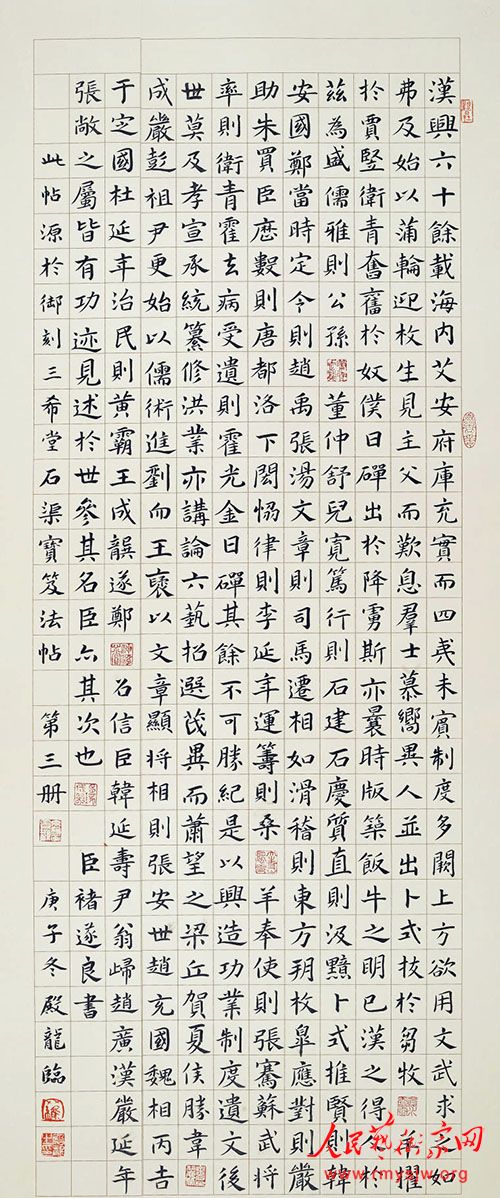 漢興六十餘載海内艾安府庫充實而四夷未賓制度多闕上方欲用文武求之如
弗及始以蒲輪迎枚生見主父而歎息羣士慕嚮異人並出卜式拔於芻牧羊擢
於賈豎衛青奮舊於奴僕日磾出於降虜斯亦曩時版築飯牛之明已漢之得人於
茲為盛儒雅則公孫董仲舒兒寬篤行則石建石慶質直則汲黯卜式推賢則韓
安國鄭當時定令則趙禹張湯文章則司馬遷相如滑稽則東方朔枚皐應對則嚴
助朱買臣歷數則唐都洛下閎恊律則李延年運籌則桑羊奉使則張騫蘇武將
率則衛青霍去病受遺則霍光金日磾其餘不可勝紀是以興造功業制度遺文後
世莫及孝宣承統纂修洪業亦講論六藝招選茂異而蕭望之梁丘賀夏侯勝韋
成嚴彭祖尹更始以儒術進劉向王襃以文章顯將相則張安世趙充國魏相丙吉
于定國杜延年治民則黃霸王成龔遂鄭召信臣韓延壽尹翁歸趙廣漢嚴延年
張敞之屬皆有功迹見述於世參其名臣亦其次也 臣褚遂良書
此帖源於御刻三希堂石渠寶笈法帖 第三册 庚子冬殿龍臨
人民艺术家网
www.rmysjw.org